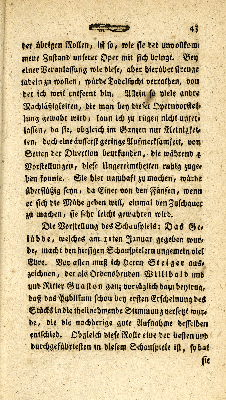 43
der übrigen Rollen, ist so, wie sie der unvollkom-
mene Zustand unserer Oper mit sich bringt. Bey
einer Veranlassung wie diese, aber hierüber strenge
tadeln zu wollen, würde Tadelsucht verrathen, von
der ich weit entfernt bin. Allein so viele andre
Nachläßigkeiten, die man bey dieser Opernvorstel-
lung gewahr wird, kann ich zu rügen nicht unter-
lassen, da sie, obgleich im Ganzen nur Kleinigkei-
ten, doch eine äusserst geringe Aufmerksamkeit, von
Seiten der Direction beurkunden, die während 4
Vorstellungen, diese Ungereimtheiten ruhig zuge-
ben konnte. Sie hier namhaft zu machen, würde
überflüßig seyn, da Einer von den Fünfen, wenn
er sich die Mühe geben will, einmal den Zuschauer
zu machen, sie sehr leicht gewahren wird.
Die Vorstellung des Schauspiels: Das Ge-
lübde, welches am 11ten Januar gegeben wur-
de, macht den hiesigen Schauspielern ungemein viel
Ehre. Vor allen muß ich Herrn Steiger aus-
zeichnen, der als Ordensbruder Willibald und
und Ritter Guaston ganz vorzüglich dazu beytrug,
daß das Publikum schon bey ersten Erscheinung des
Stücks in die theilnehmende Stimmung versetzt wur-
de, die die nachherige gute Aufnahme desselben
entschied. Obgleich diese Rolle eine der besten und
durchgeführtesten in diesem Schauspiele ist, so hat
sie